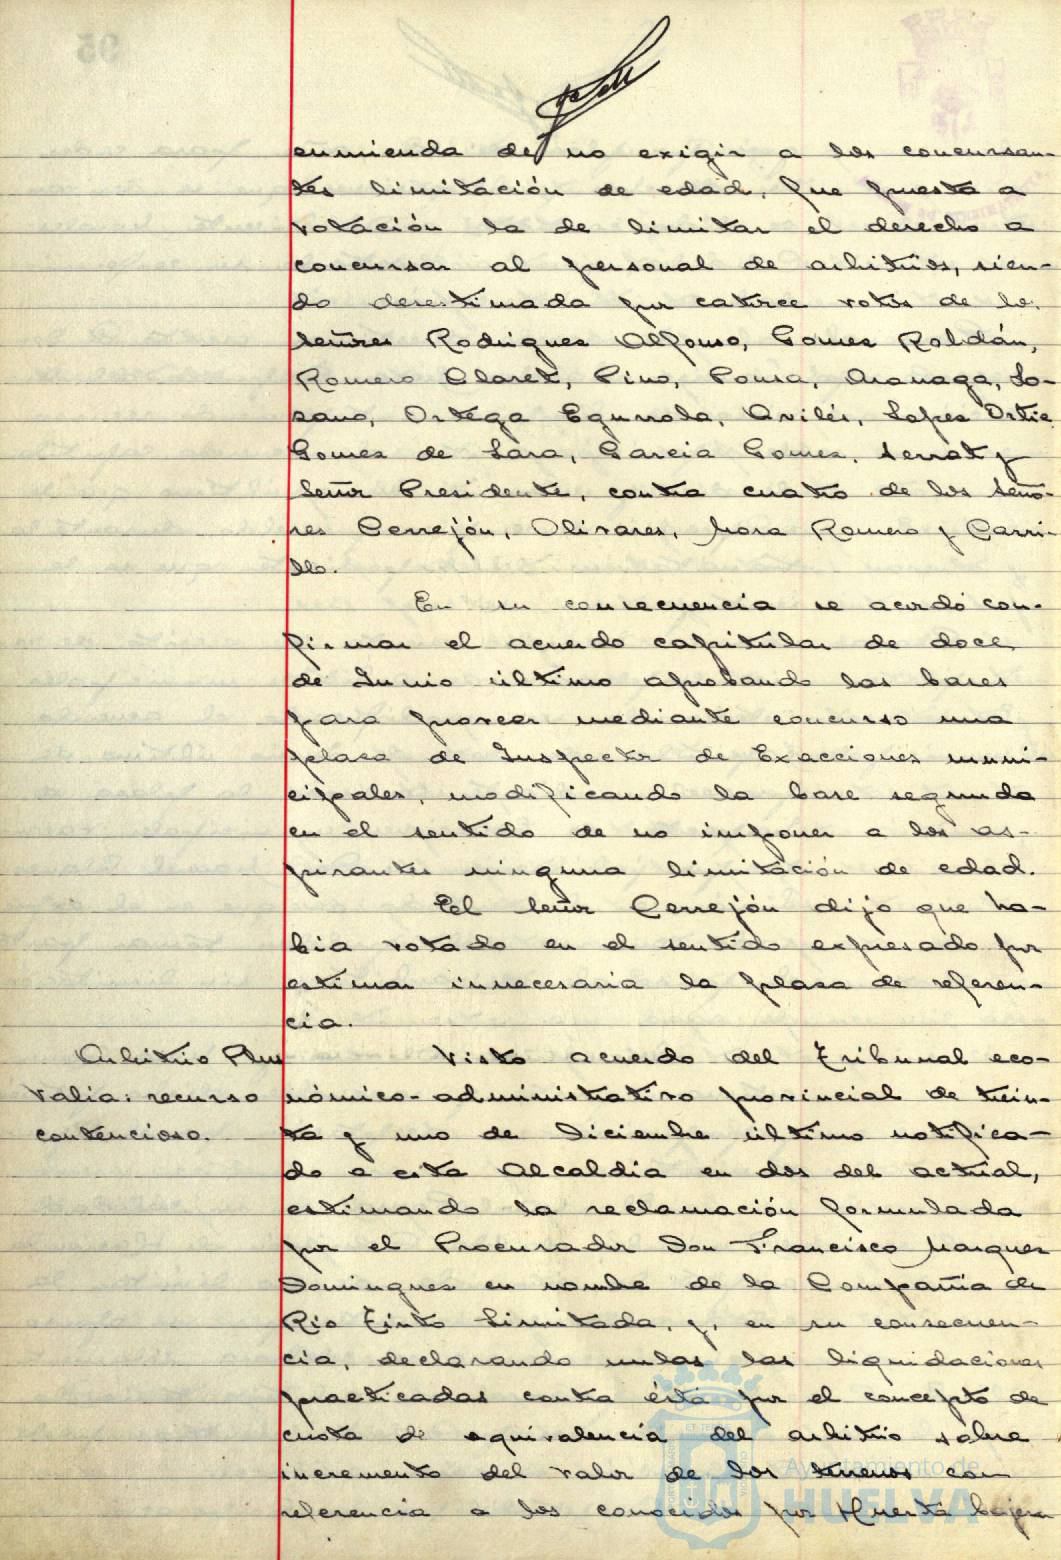 enmienda de no exigir a los concursan-
tes limitación de edad. Que puesta a
votación la de limitar el derecho a
concursar al personal de arbitrios, sien-
do desestimada por catorce votos de los
señores Rodriguez Alfonso, Gomez Roldán,
Romero Claret, Pino, Ponsa, Aranaga, Lo-
zano, Ortega Egurrola, Avilés, Lopez Ortiz
Gomez de Lara, Garcia Gomez, Serrat y
Señor Presidente, contra cuatro de los seño-
res Cerrejón, Olivares, Mora Romero y Carri-
llo.
En su consecuencia se acordó con-
firmar el acuerdo capitular de doce
de Junio último aprobando las bases
para proveer mediante concurso una
plaza de Inspector de Exacciones muni-
cipales, modificando la base segunda
en el sentido de no imponer a los as-
pirantes ninguna limitación de edad.
El Señor Cerrejón dijo que ha-
bia votado en el sentido expresado por
estimar innecesaria la plaza de referen-
cia.
Arbitrio Plus
Valia: recurso
contencioso.
Visto acuerdo del Tribunal eco-
nómico-administrativo provincial de trein-
ta y uno de Diciembre último notifica-
do a esta Alcaldia en dos del actual,
estimando la reclamación formulada
por el Procurador Don Francisco Marquez
Dominguez en nombre de la Compañia de
Rio Tinto Limitada, y, en su consecuen-
cia, declarando nulas las liquidaciones
practicadas contra ésta por el concepto de
cuota de equivalencia del arbitrio sobre
incremento del valor de los terrenos con
referencia a los conocidos por Huerta
Ayuntamiento de
HUELVA